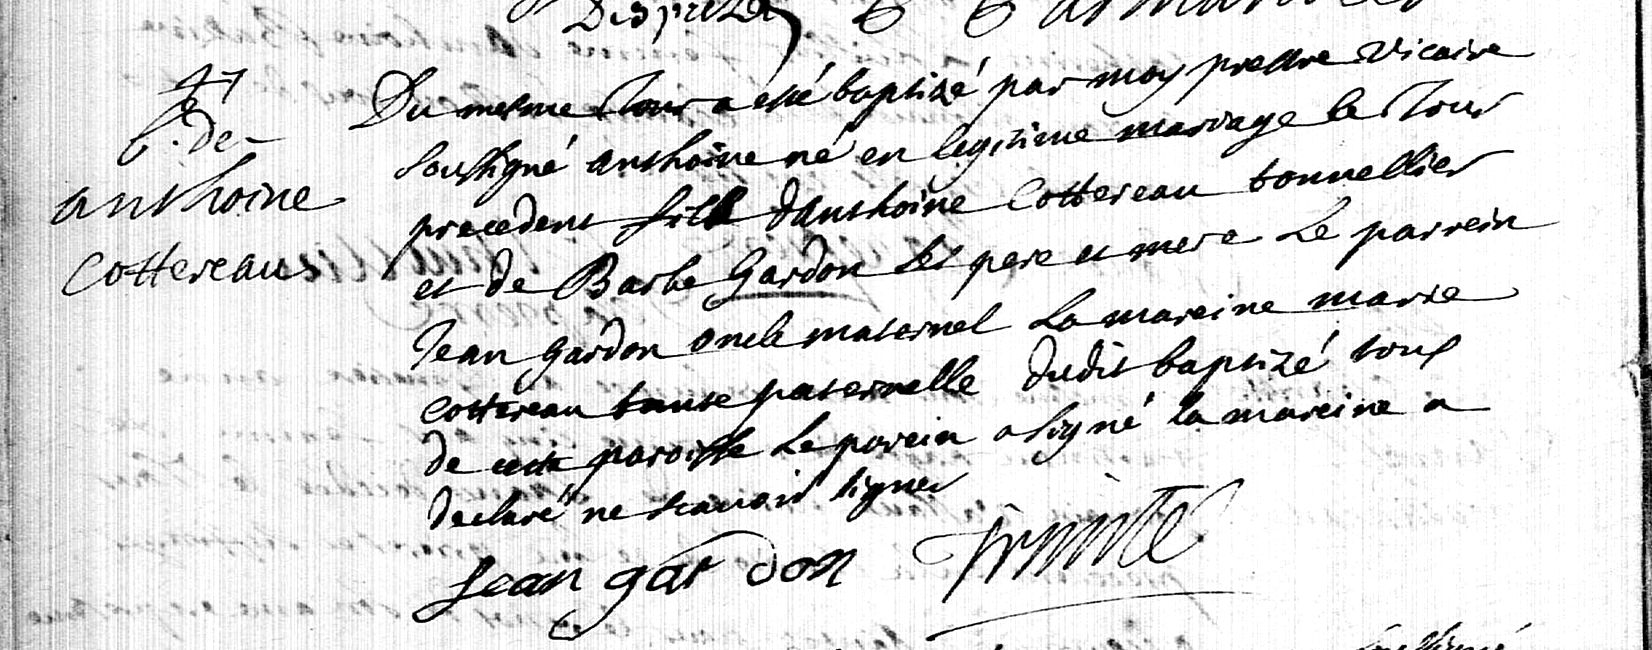 Du mesme Jour a esté baptizé par moy prestre Vicaire
B. de
anthoine
Cottereau
soussigné anthoine né en legitime mariage le Jour
precedent fils d'anthoine Cottereau tonnellier
et de Barbe Gardon ses pere et mere Le parrein
Jean Gardon oncle maternel La mareine marie
Cottereau tante paternelle dudit baptizé tous
de cette paroisse Le parein a signé la mareine a
declaré ne scauoir signer
Jean gardon